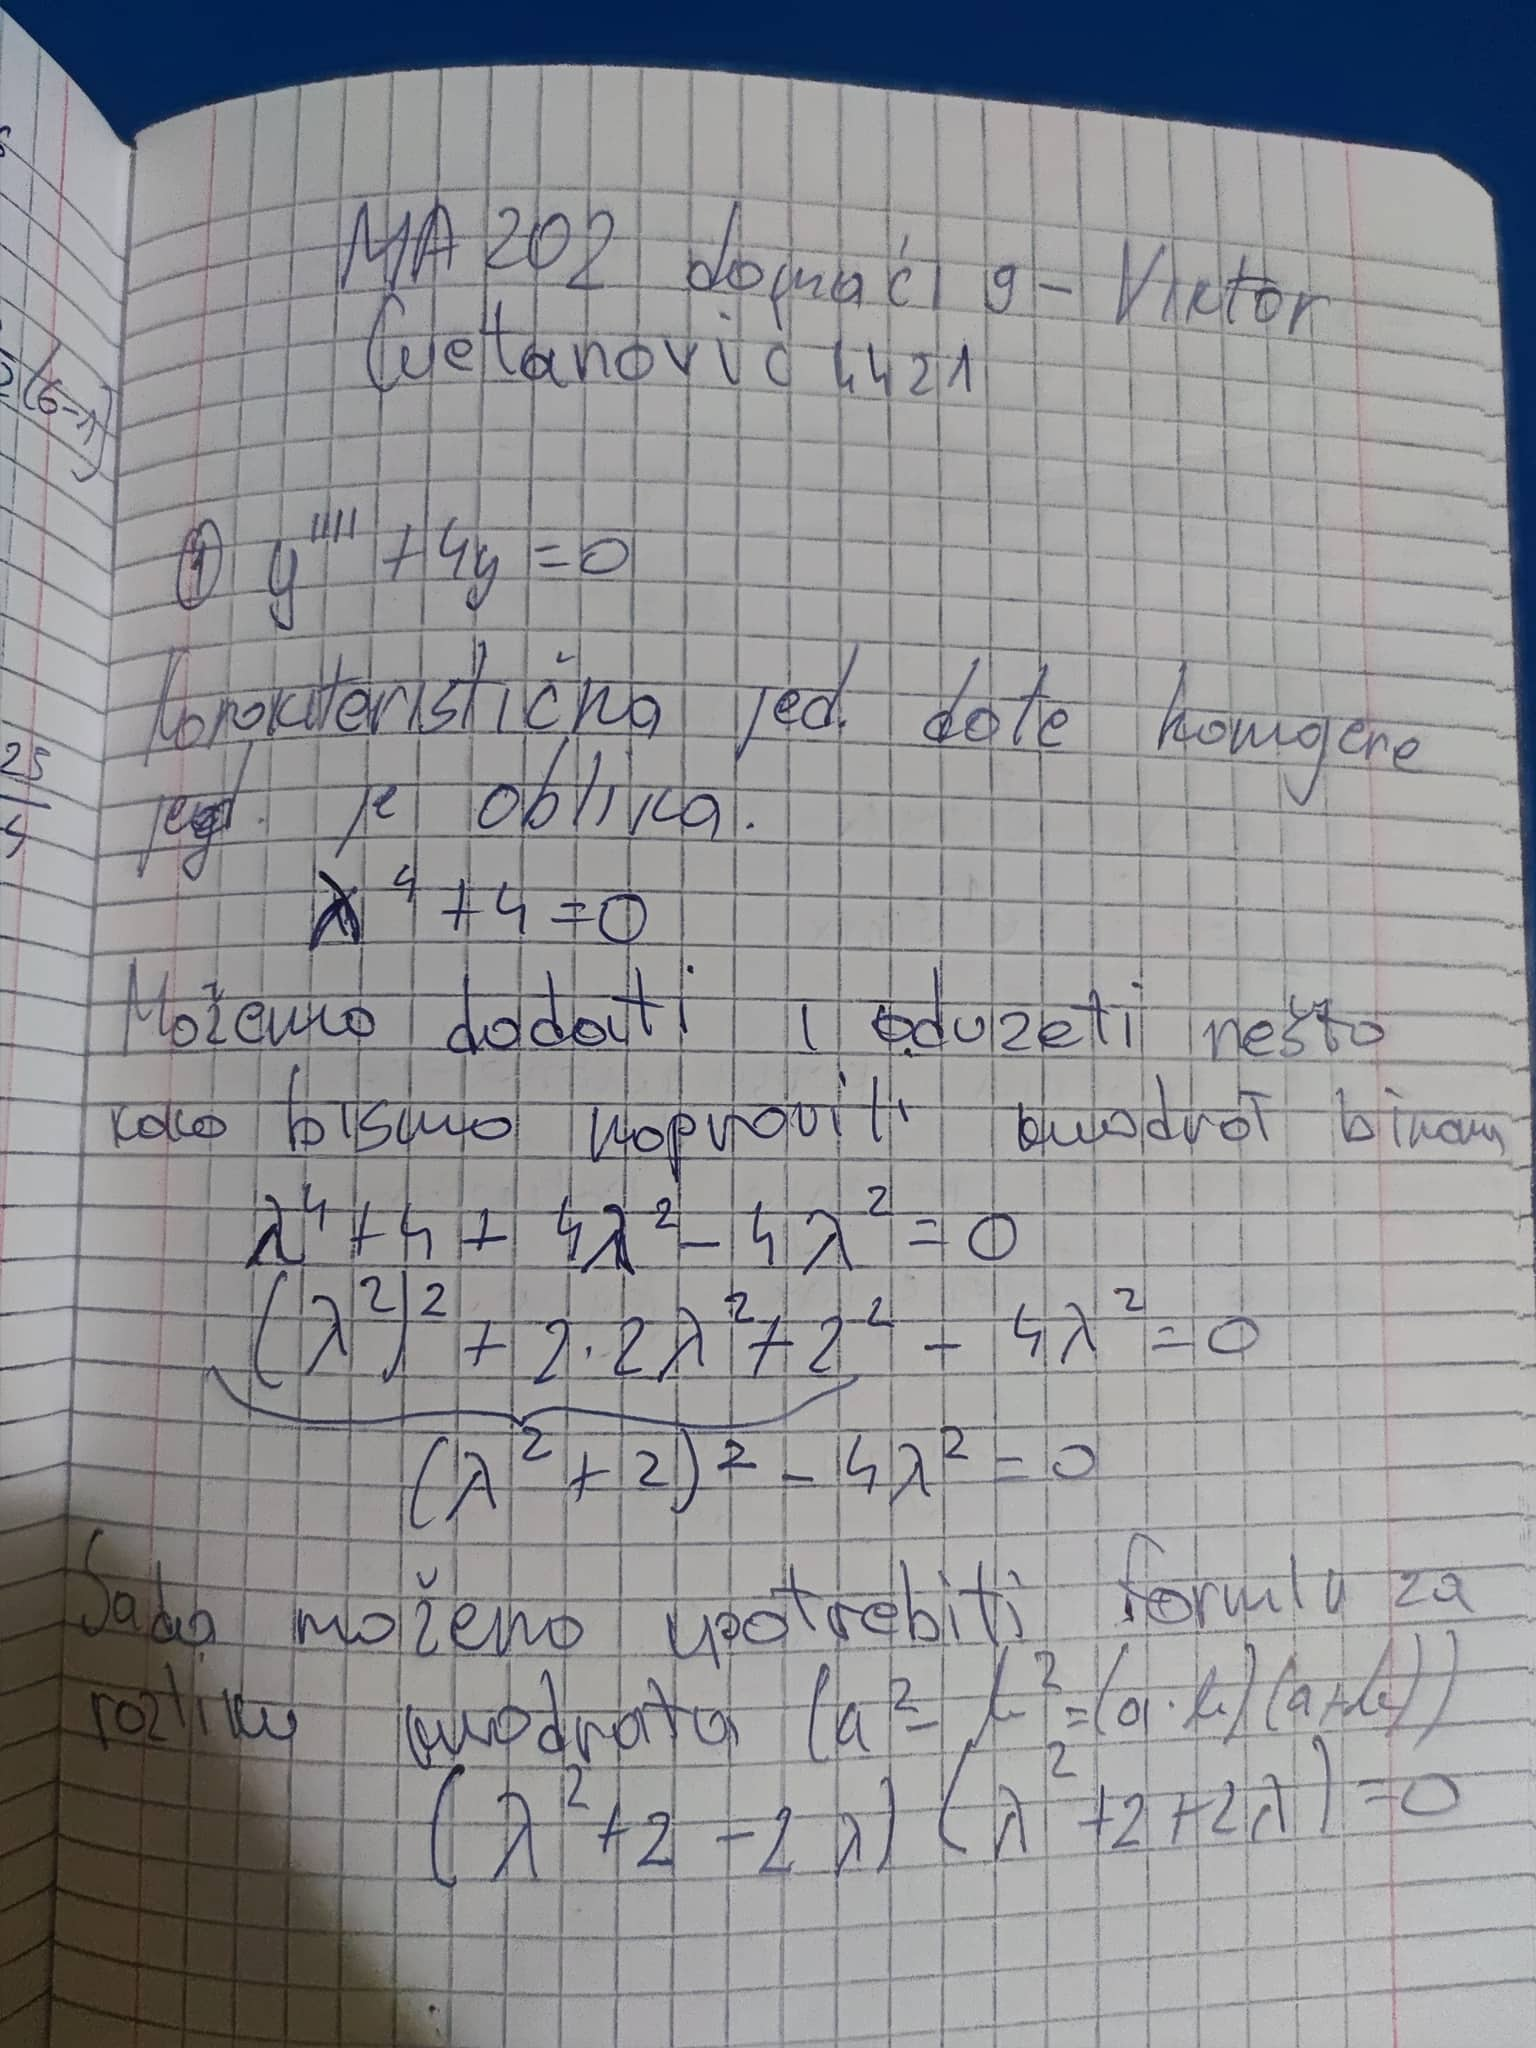 MA 202 domaći 9 - Viktor
Cvetanovic 4421
① y'''' + 4y = 0
Karakteristična jed. date homgene
jed. je oblika.
λ⁴ + 4 = 0
Možemo dodati i oduzeti nešto
kako bismo napravili kvadrat binom
λ⁴ + 4 + 4λ² - 4λ² = 0
(λ²)² + 2·2λ² + 2² - 4λ² = 0
(λ² + 2)² - 4λ² = 0
Sada možemo upotrebiti formulu za
razliku kvadrata (a² - b² = (a-b)(a+b))
(λ² + 2 - 2λ)(λ² + 2 + 2λ) = 0
(6-1)
25